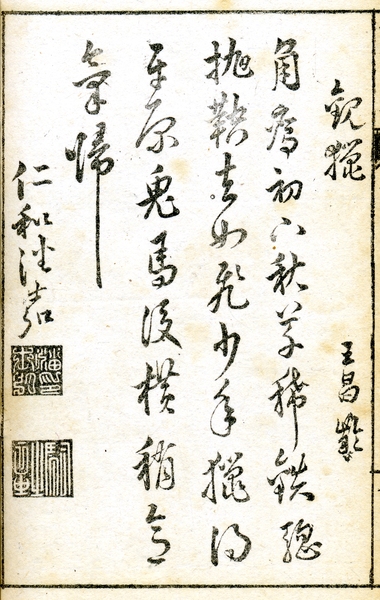 觀獵
王昌齡
角鷹初下秋草稀鉄驄
抛鞚去如飛少年獵得
平原兔馬後横稍意
氣歸
仁和